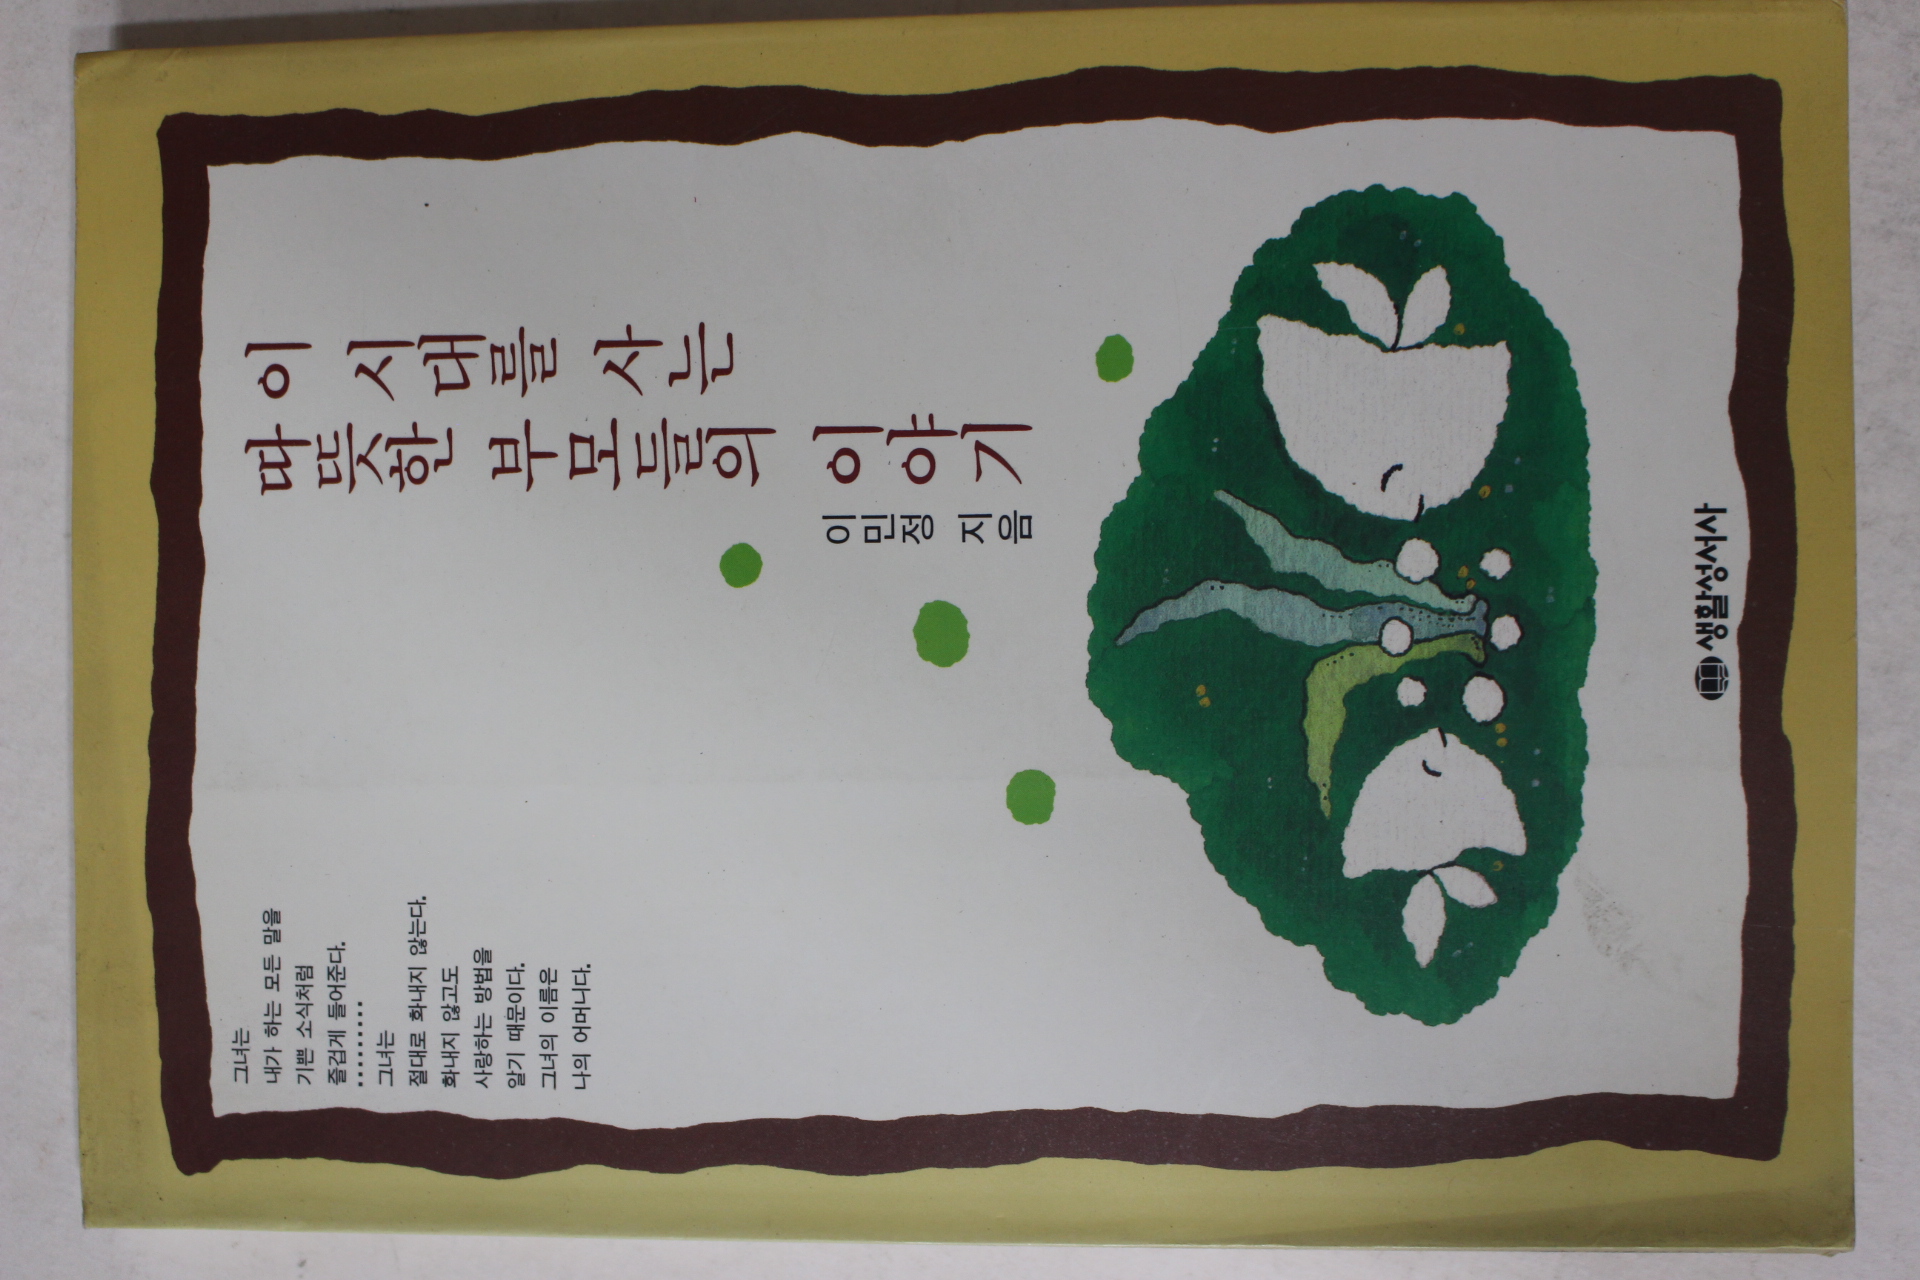 이 시대를 사는
따뜻한 부모들의 이야기
이민정 지음
그녀는
내가 하는 모든 말을
기쁜 소식처럼
즐겁게 들어준다.
.........
그녀는
절대로 화내지 않는다.
화내지 않고도
사랑하는 방법을
알기 때문이다.
그녀의 이름은
나의 어머니다.
생활성서사